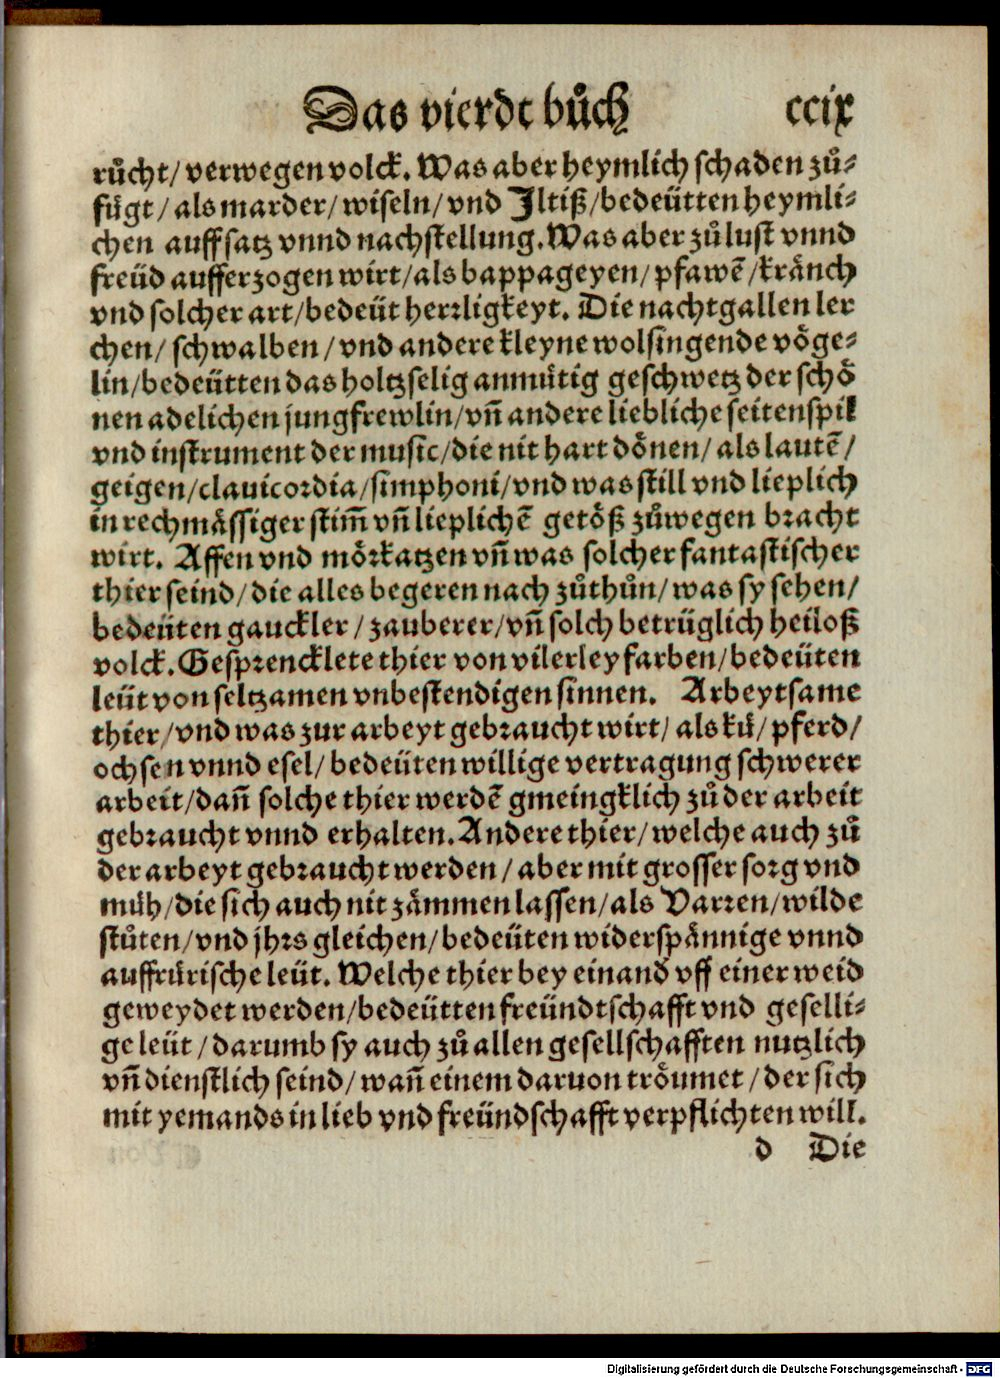 Das vierdt bůch ccix
růcht/ verwegen volck. Was aber heymlich schaden zů⸗
fügt/ als marder/ wiseln/ vnd Iltiß/ bedeütten heymli⸗
chen auffsatz vnnd nachstellung. Was aber zů lust vnnd
freüd aufferzogen wirt/ als bappageyen/ pfawē/ kränch
vnd solcher art/ bedeüt herꝛligkeyt. Die nachtgallen ler
chen/ schwalben/ vnd andere kleyne wolsingende vöge⸗
lin/ bedeütten das holtzselig anmütig geschwetz der schö
nen adelichen jungfrewlin/ vñ andere liebliche seitenspil
vnd instrument der music/ die nit hart dönen/ als lautē/
geigen/ clauicoꝛdia/ simphoni/ vnd was still vnd lieplich
in rechmässiger stim̃ vñ lieplichē getöß zůwegen bꝛacht
wirt. Affen vnd möꝛkatzen vñ was solcher fantastischer
thier seind/ die alles begeren nach zůthůn/ was sy sehen/
bedeüten gauckler/ zauberer/ vñ solch betrüglich heiloß
volck. Gespꝛencklete thier von vilerley farben/ bedeüten
leüt von seltzamen vnbestendigen sinnen. Arbeytsame
thier/ vnd was zur arbeyt gebꝛaucht wirt/ als kü/ pferd/
ochsen vnnd esel/ bedeüten willige vertragung schwerer
arbeit/ dañ solche thier werdē gmeingklich zů der arbeit
gebꝛaucht vnnd erhalten. Andere thier/ welche auch zů
der arbeyt gebꝛaucht werden/ aber mit grosser soꝛg vnd
müh/ die sich auch nit zämmen lassen/ als Varꝛen/ wilde
stůten/ vnd jhꝛs gleichen/ bedeüten widerspännige vnnd
auffrürische leüt. Welche thier bey einand vff einer weid
geweydet werden/ bedeütten freündtschafft vnd geselli⸗
ge leüt/ darumb sy auch zů allen gesellschafften nutzlich
vñ dienstlich seind/ wañ einem daruon tröumet/ der sich
mit yemands in lieb vnd freündschafft verpflichten will.
d Die
Digitalisierung gefördert durch die Deutsche Forschungsgemeinschaft - DFG